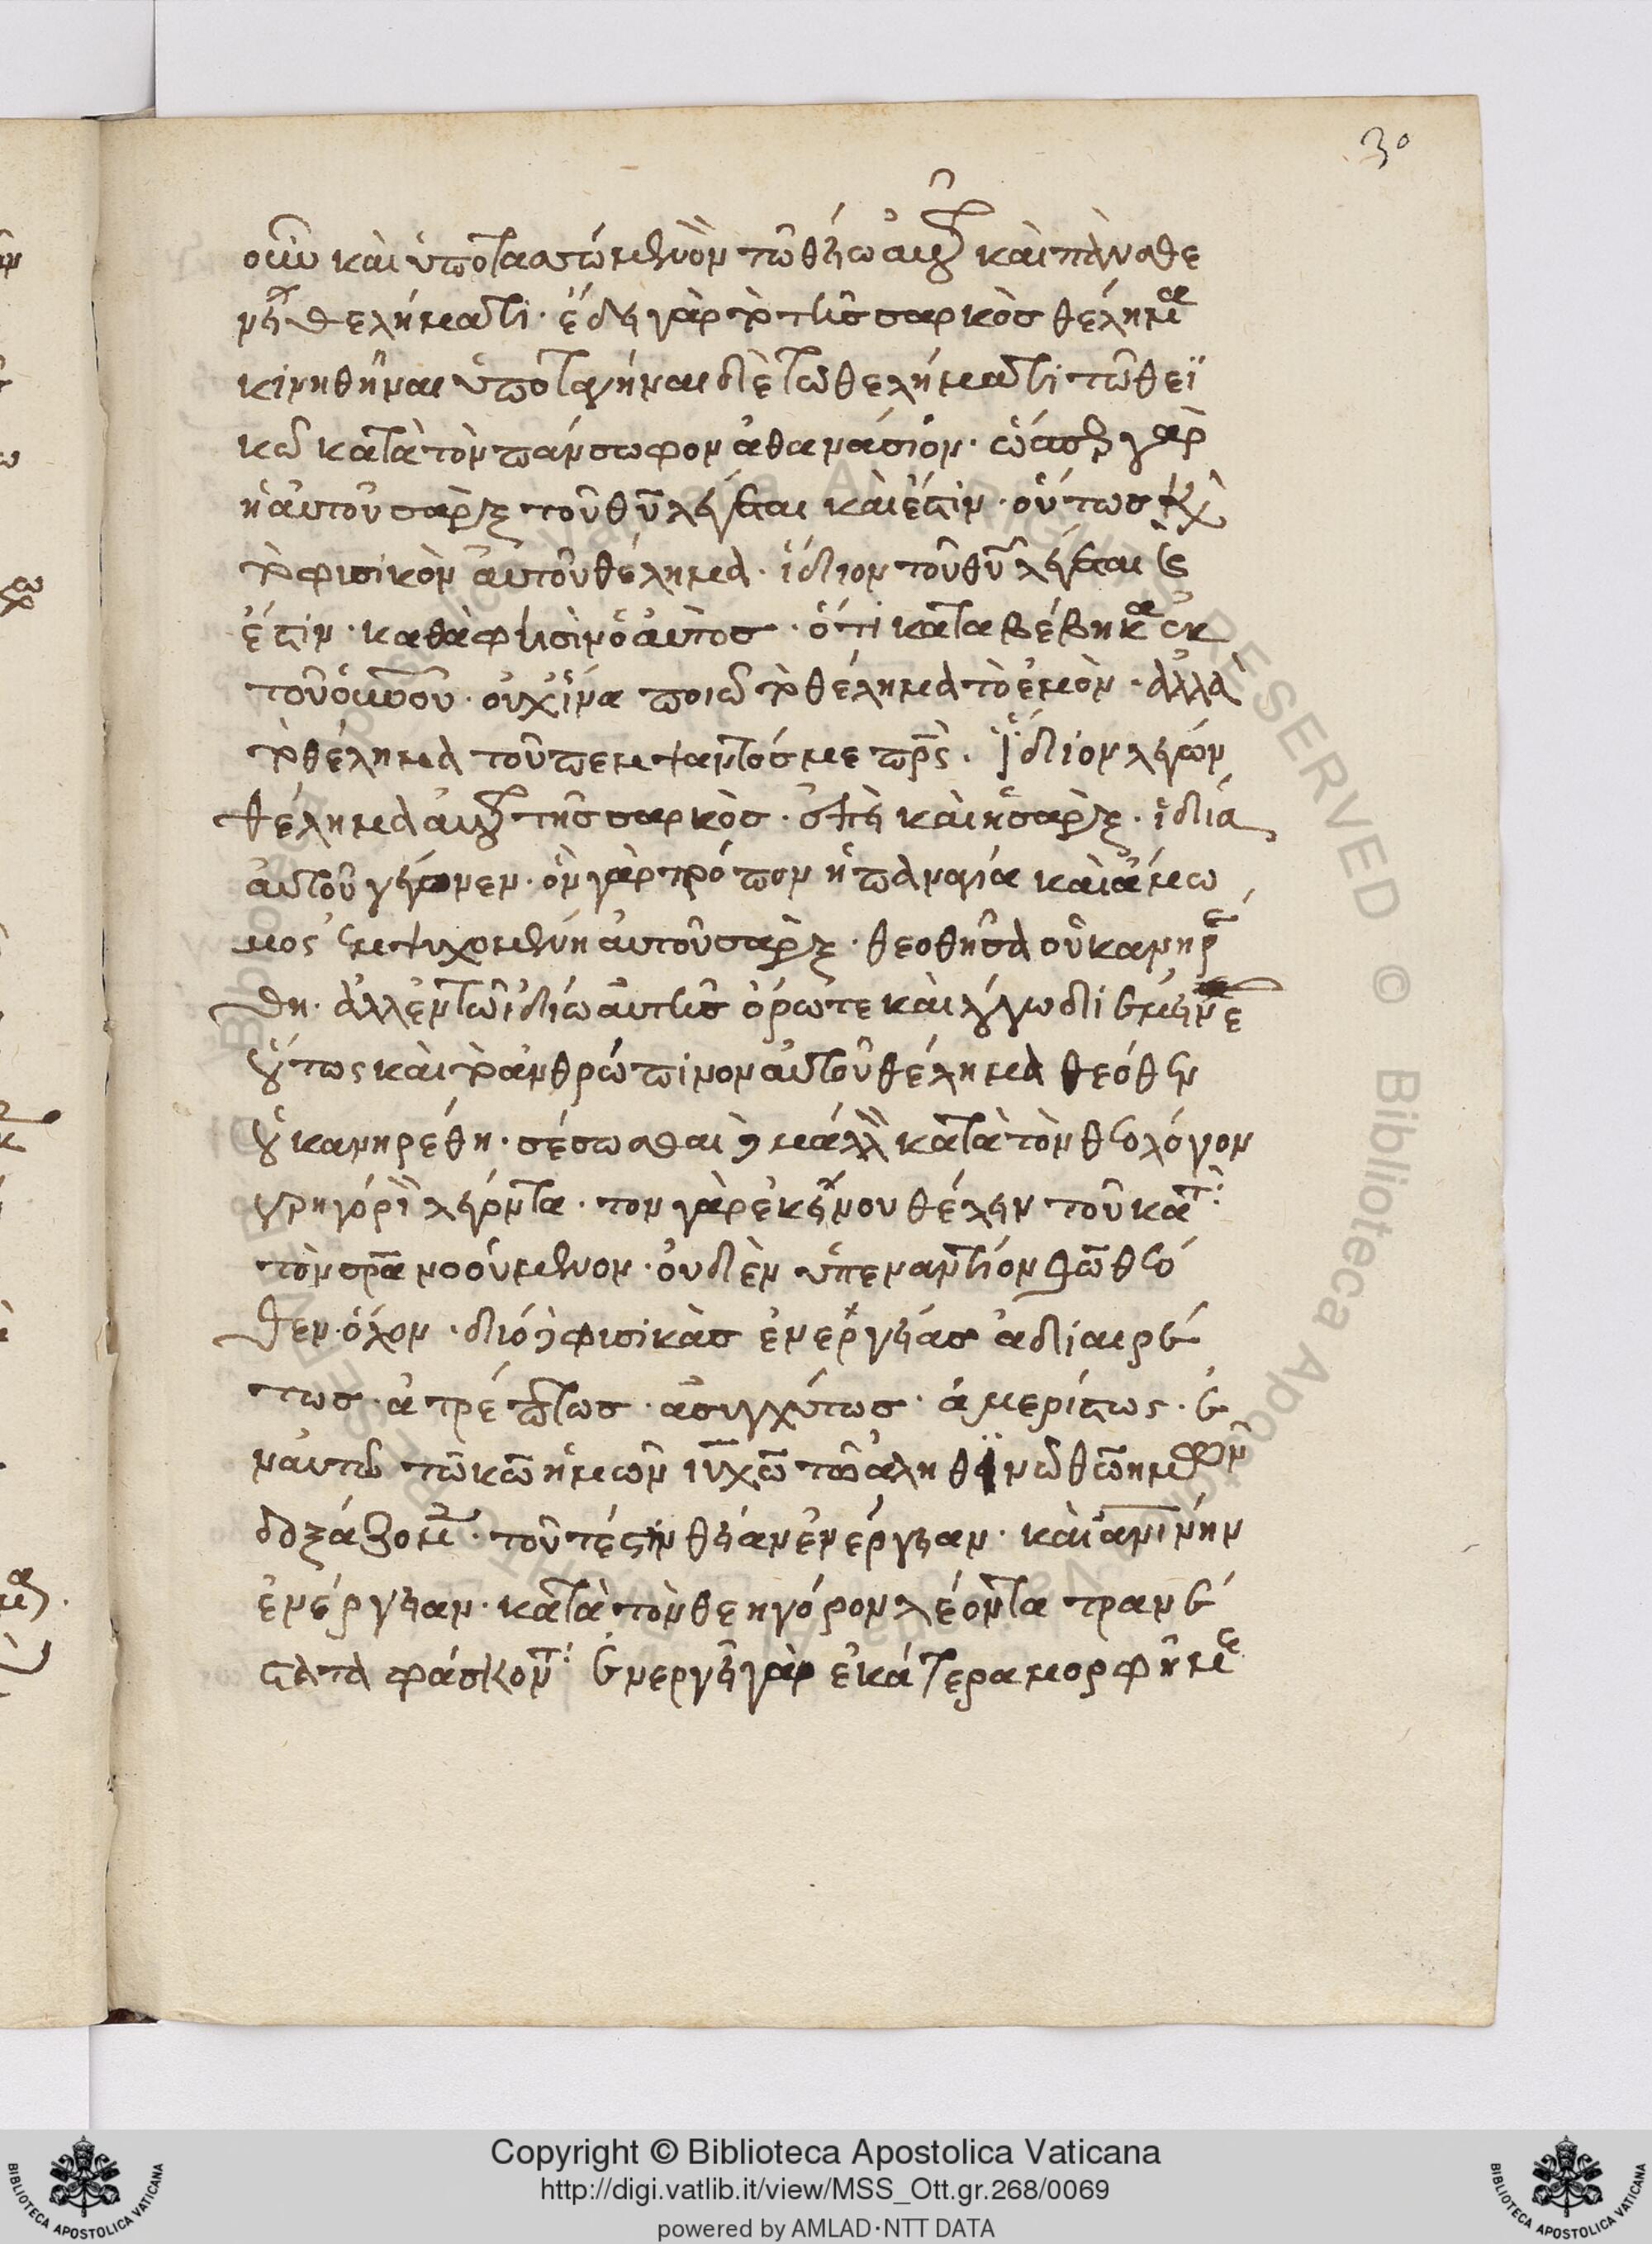 30
οῦν καὶ ὑποτασσόμενον τῶ θείω αὐτοῦ καὶ πανσθε
νεῖ θελήματι· ἔδει γὰρ τὸ τῆς σαρκὸς θέλημα
κινηθῆναι ὑποταγῆναι δὲ τῶ θελήματι τῶ θεϊ
κῶ κατὰ τὸν πάνσοφον ἀθανάσιον· ὥσπερ γὰρ
ἡ αὐτοῦ σὰρξ τοῦ θυ λέγεται καὶ ἔστιν· οὕτως καὶ
τὸ φυσικὸν αὐτοῦ θέλημα· ἴδιον τοῦ θυ λέγεται καὶ
ἔστιν· καθὰ φησὶν ὁ αὐτὸς· ὅτι καταβέβηκα ἐκ
τοῦ οὐνοῦ· οὐχ ἵνα ποιῶ τὸ θέλημα τὸ ἐμὸν· ἀλλὰ
τὸ θέλημα τοῦ πέμψαντός με πρς· ἴδιον λέγων
θέλημα αὐτοῦ τῆς σαρκὸς· ἐπεὶ καὶ ἡ σὰρξ· ἰδία
αὐτοῦ γέγονεν· ὃν γὰρ τρόπον ἡ παναγία καὶ ἄμω
μος ἐμψυχομένη αὐτοῦ σὰρξ· θεωθῆσα οὐκ ἀνηρέ
θη· ἀλλ ἐν τῶ ἰδίω αὐτῆς ὅρω τε καὶ λόγω διέμεινε
οὕτως καὶ τὸ ἀνθρώπινον αὐτοῦ θέλημα θεωθὲν
οὐκ ἀνηρέθη· σέσωσται δὲ μᾶλλον κατὰ τὸν θεολόγον
γρηγόριον λέγοντα· τον γὰρ ἐκείνου θέλειν τοῦ κατὰ
τὸν σρα νοούμενον· οὐδὲν ὑπεναντίον θῶ θεω
θεν ὅλον· δύο δὲ φυσικὰς ἐνεργείας ἀδιαιρέ
τως· ἀτρέπτως· ἀσυγχύτως· ἀμερίστως· ἐ
ν αὐτῶ τῶ κω ἡμῶν ιυ χω τῶ ἀληθινῶ θω ἡμῶν
δοξάζομεν· τοῦτέστιν θείαν ἐνέργειαν· καὶ ανινην
ἐνέργειαν· κατὰ τὸν θεηγόρον λέοντα τρανέ
στατα φάσκοντα· ἐνεργεῖ γὰρ ἑκάτερα μορφὴ με
Copyright © Biblioteca Apostolica Vaticana
http://digi.vatlib.it/view/MSS_Ott.gr.268/0069
powered by AMLAD·NTT DATA